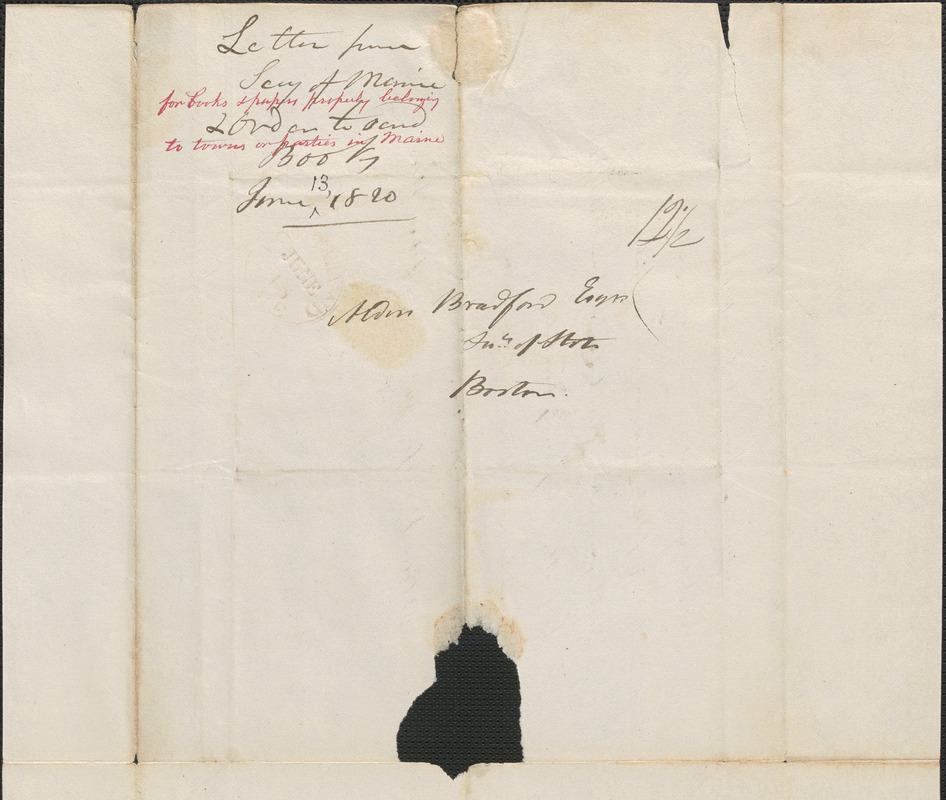 Letter from
Secy of Maine
for books & papers properly belonging
& Order to send
to towns or parties in Maine
Books
June 13, 1820
12 1/2
JUNE
Alden Bradford Esqr
Secy of State
Boston.